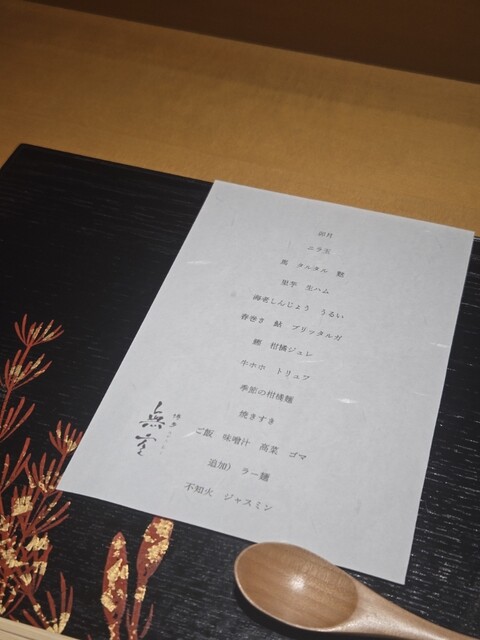 卯月
ニラ玉
馬　タルタル　麩
里芋　生ハム
海老しんじょう　うるい
春巻き　鮎　ブリッタルガ
鰹　柑橘ジュレ
牛ホホ　トリュフ
季節の柑橘麺
焼きすき
ご飯　味噌汁　高菜　ゴマ
追加）ラー麺
不知火　ジャスミン
博多